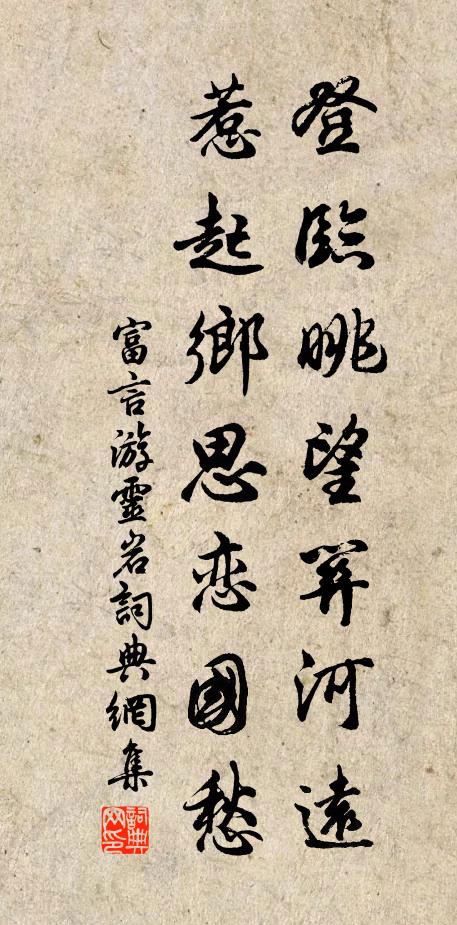 登臨眺望關河遠
惹起鄉思恋國愁
富言游靈岩詞典網集
詞典網印